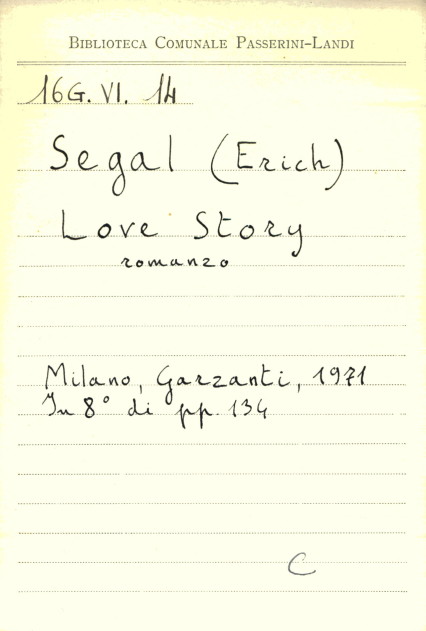 BIBLIOTECA COMUNALE PASSERINI-LANDI
16G. VI. 14
Segal (Erich)
Love Story
romanzo
Milano, Garzanti, 1971
In 8° di pp. 134
C